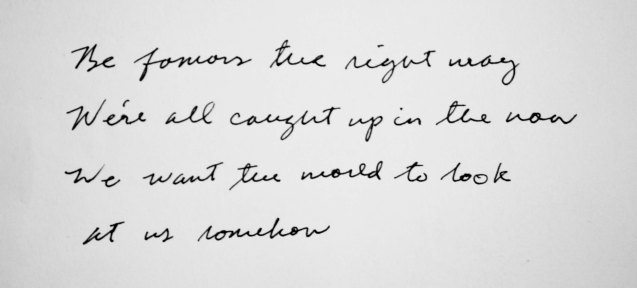 Be famous the right way
We're all caught up in the now
We want the world to look
at us somehow